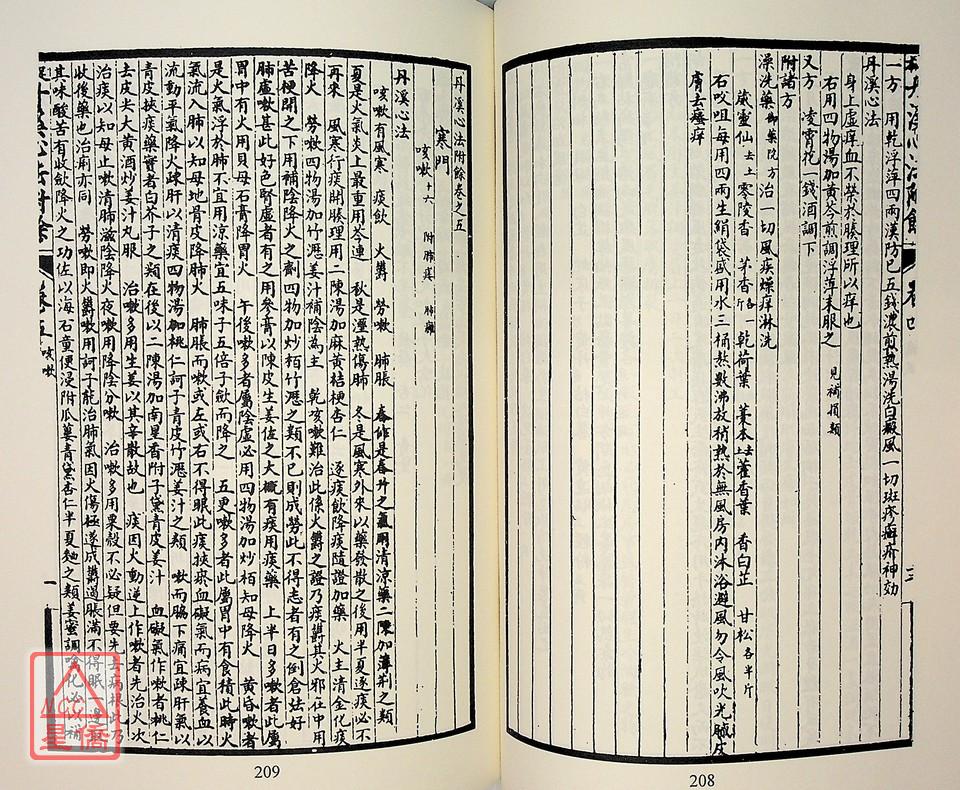 一方　用乾浮萍四兩漢防巳五錢濃煎熱湯洗白癜風一切斑疹癬疥神効
丹溪心法
身上虛痒血不榮於腠理所以痒也
右用四物湯加黃芩煎調浮萍末服之　見補損類
又方　凌霄花一錢酒調下
附諸方
澡洗藥御藥院方治一切風疾燥痒淋洗
葳靈仙去土　零陵香　茅香各一斤　乾荷葉　藁本去土　藿香葉　香白芷　甘松各半斤
右㕮咀每用四兩生絹袋盛用水三桶熬數沸放稍熱於無風房内沐浴避風勿令風吹光膩皮
膚去瘙痒
三
208
丹溪心法附餘卷之五
寒門
咳嗽十六　附肺痿　肺癰
丹溪心法
咳嗽有風寒　痰飲　火鬱　勞嗽　肺脹　春作是春升之氣用清涼藥二陳加薄荆之類
夏是火氣炎上最重用芩連　秋是溼熱傷肺　冬是風寒外來以藥發散之後用半夏逐痰必不
再來　風寒行痰開腠理用二陳湯加麻黃桔梗杏仁　逐痰飲降痰隨證加藥　火主清金化痰
降火　勞嗽四物湯加竹瀝姜汁補陰為主　乾咳嗽難治此係火鬱之證乃痰鬱其火邪在中用
苦梗開之下用補陰降火之劑四物加炒栢竹瀝之類不已則成勞此不得志者有之倒倉法好
肺虛嗽甚此好色腎虛者有之用參膏以陳皮生姜佐之大槪有痰用痰藥　上半日多嗽者此屬
胃中有火用貝母石膏降胃火　午後嗽多者屬陰虛必用四物湯加炒栢知母降火　黃昏嗽者
是火氣浮於肺不宜用涼藥宜五味子五倍子歛而降之　五更嗽多者此屬胃中有食積此時火
氣流入肺以知母地骨皮降肺火　肺脹而嗽或左或右不得眠此痰挾瘀血礙氣而病宜養血以
流動平氣降火疎肝以清痰四物湯加桃仁訶子青皮竹瀝姜汁之類　嗽而脇下痛宜疎肝氣以
青皮挾痰藥實者白芥子之類在後以二陳湯加南星香附子黛青皮姜汁　血礙氣作嗽者桃仁
去皮尖大黃酒炒姜汁丸服　治嗽多用生姜以其辛散故也　痰因火動逆上作嗽者先治火次
治痰以知母止嗽清肺滋陰降火夜嗽用降陰分嗽　治嗽多用粟殼不必疑但要先去病根此乃
收後藥也治痢亦同　勞嗽即火鬱嗽用訶子能治肺氣因火傷極遂成鬱遏脹滿不得眠一邊
其味酸苦有收歛降火之功佐以海石童便浸附瓜蔞青黛杏仁半夏麯之類姜蜜調噙化必以補
卷五　咳嗽
一
209
MCC
星僑